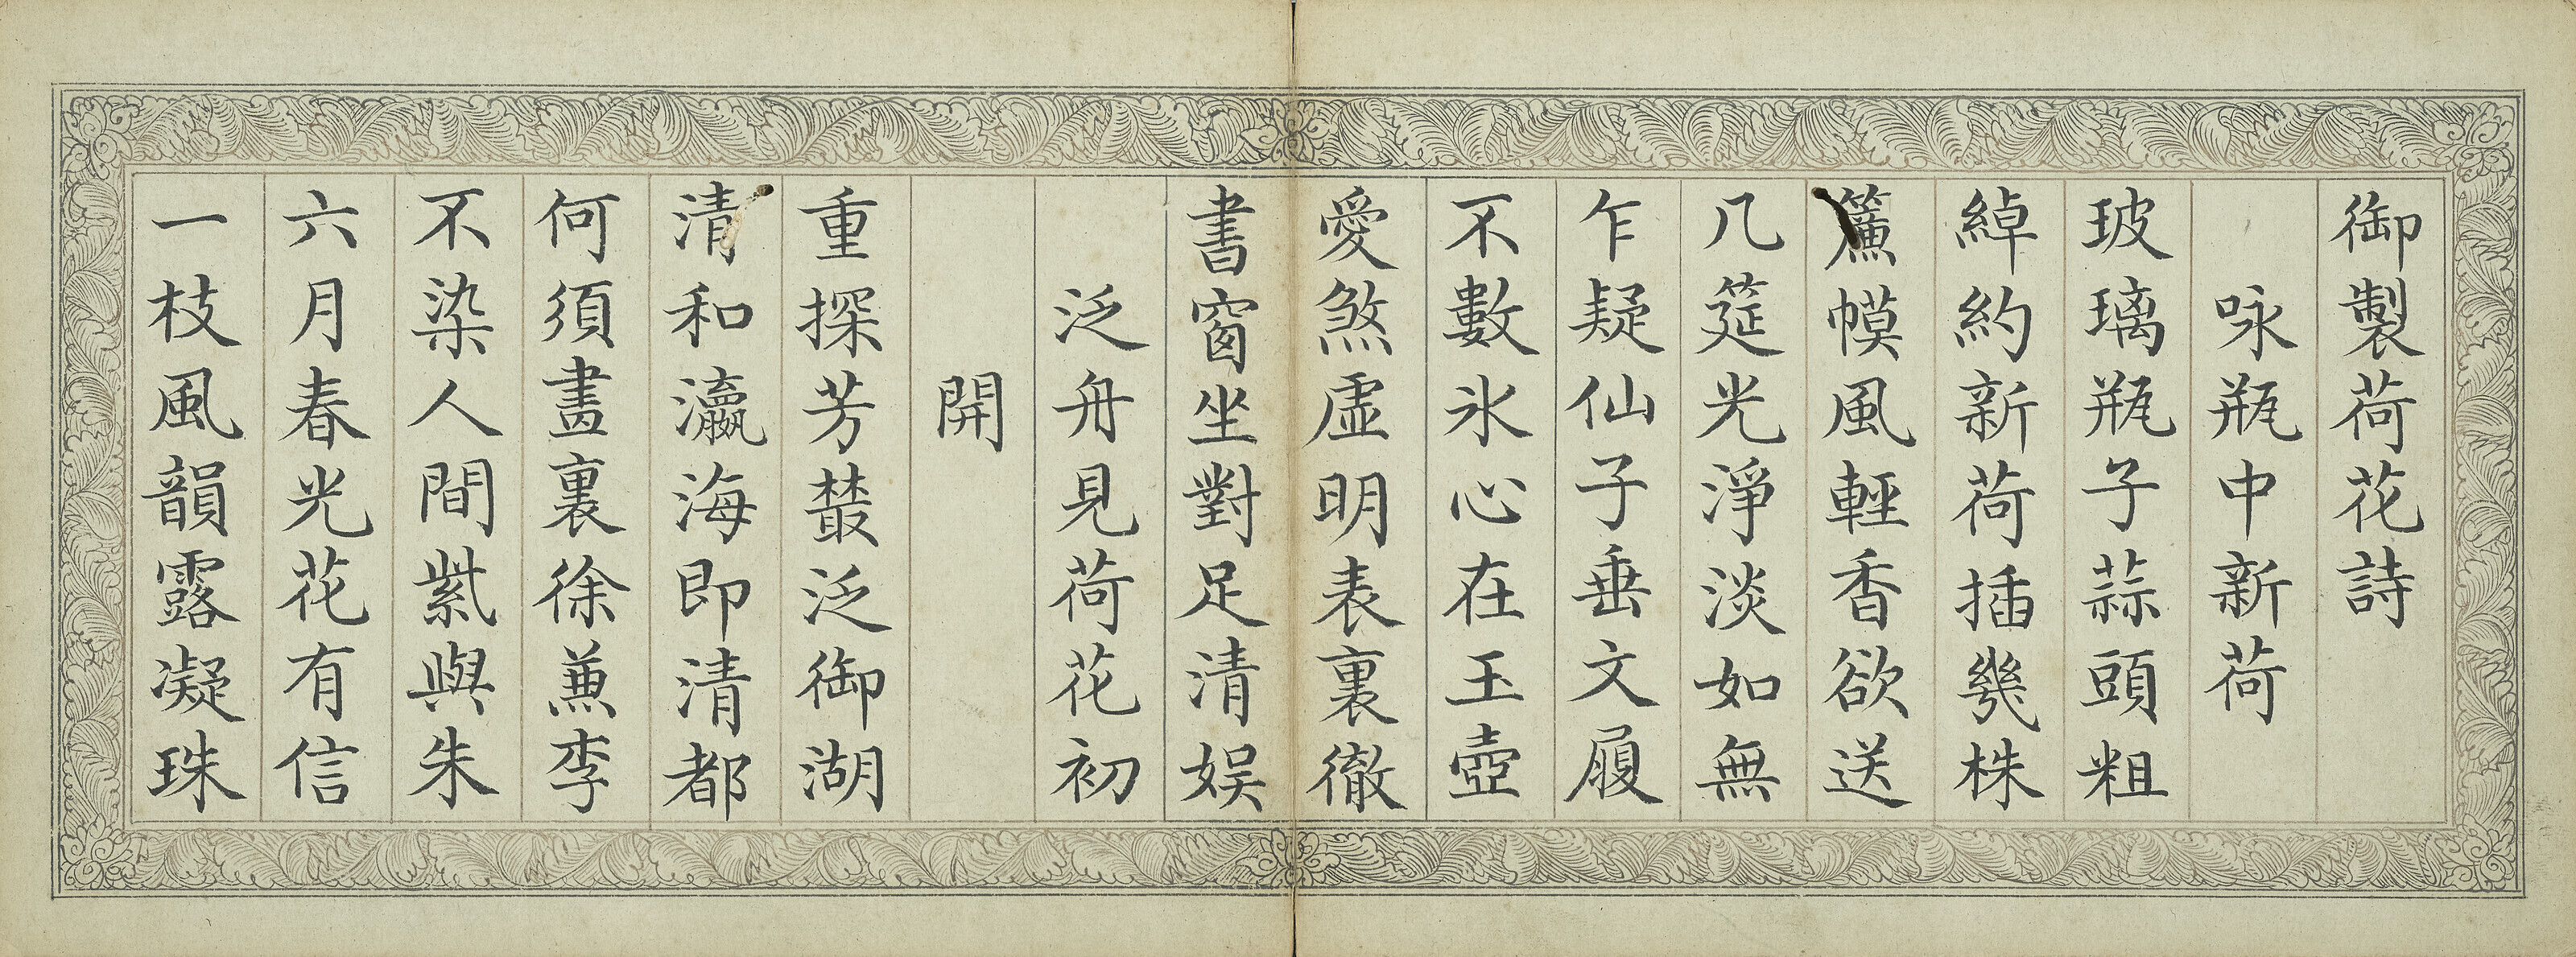 御製荷花詩
咏瓶中新荷
玻璃瓶子蒜頭粗
綽約新荷插幾株
簾幙風輕香欲送
几筵光淨淡如無
乍疑仙子垂文履
不數氷心在玉壺
愛煞虛明表裏徹
書窗坐對足清娛
泛舟見荷花初
開
重探芳藂泛御湖
清和瀛海即清都
何須畫裏徐兼李
不染人間紫與朱
六月春光花有信
一枝風韻露凝珠